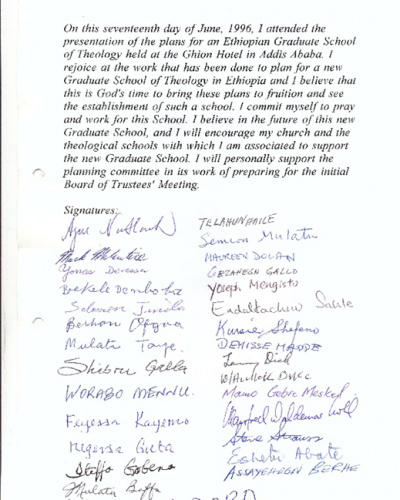 On this seventeenth day of June, 1996, I attended the
presentation of the plans for an Ethiopian Graduate School
of Theology held at the Ghion Hotel in Addis Ababa. I
rejoice at the work that has been done to plan for a new
Graduate School of Theology in Ethiopia and I believe that
this is God's time to bring these plans to fruition and see
the establishment of such a school. I commit myself to pray
and work for this School. I believe in the future of this new
Graduate School, and I will encourage my church and the
theological schools with which I am associated to support
the new Graduate School. I will personally support the
planning committee in its work of preparing for the initial
Board of Trustees' Meeting.
Signatures:
Yonas
Bekele
Solomon
Berhanu
Mulatu
Shibru Galla
WORABO MENNU.
Feyessa Kayemo
Negessa Guta
Steffo Gobena
Mulatu Baffa
TELAHUN HAILE
Semeon Mulatu
MAUREEN DOLAN
GEZAHEGN GALLO
Yoseph Mengisto
Endalkachew Sahle
Kussie Shefeno
DEMISSE HADDE
Mamo Gebre Meskel
Manfred Waldemar Koll
Steve Strauss
Eshetu Abate
ASSAYEHEGN BERHE